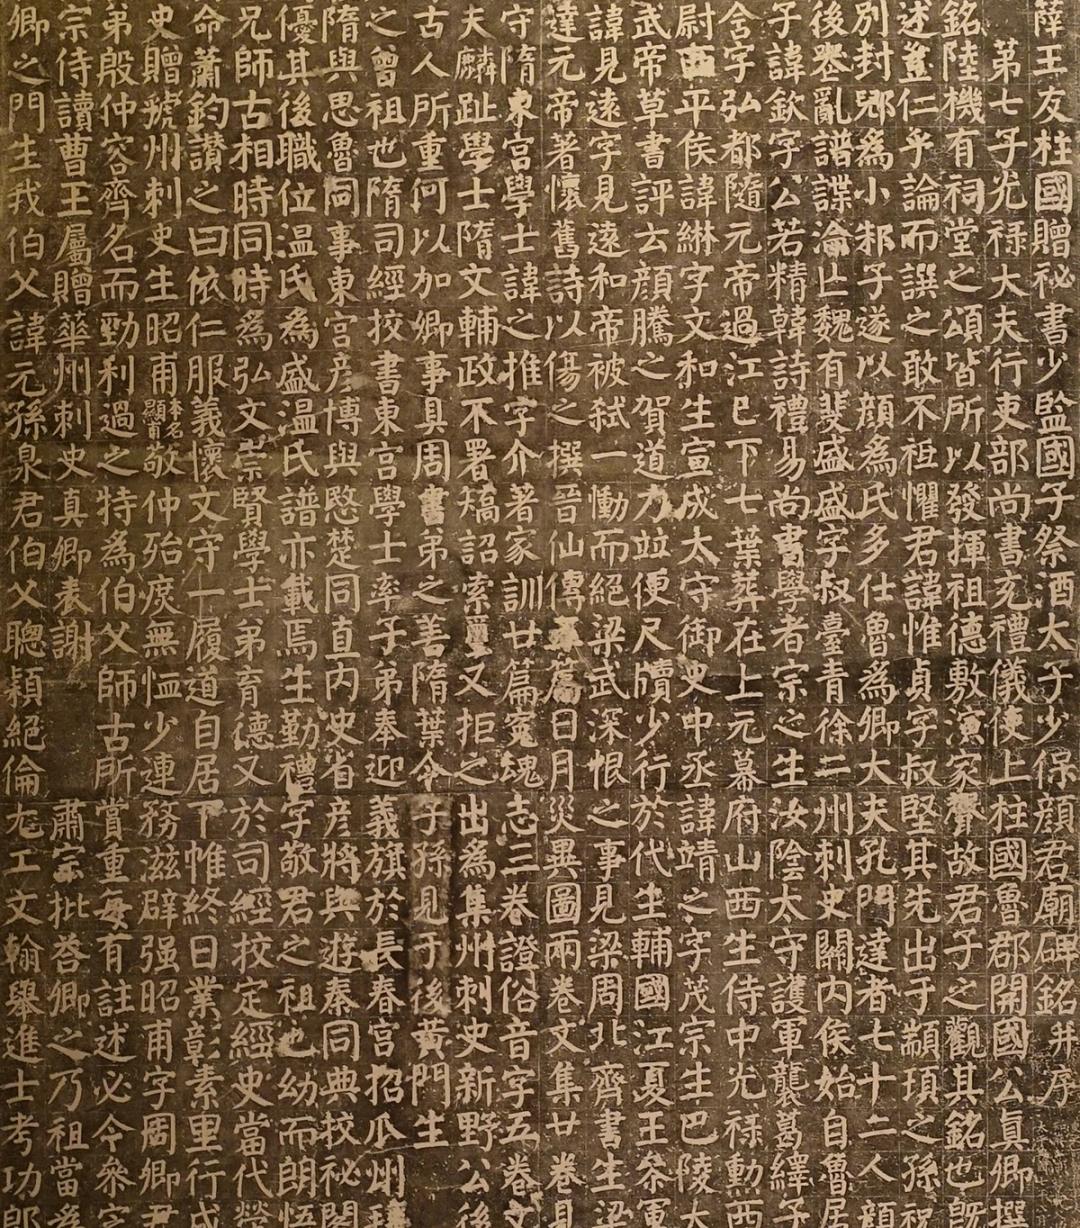 薛王友柱國贈秘書少監國子祭酒太子少保顏君廟碑銘并序
第七子光祿大夫行吏部尚書充禮儀使上柱國魯郡開國公真卿撰
銘陸機有祠堂之頌皆所以發揮祖德敷演家聲故君子之觀其銘也旣
述豈仁乎論而譔之敢不祗懼君諱惟貞字叔堅其先出于顓頊之孫祝
別封郳為小邾子遂以顏為氏多仕魯為卿大夫孔門達者七十二人顏
後喪亂譜諜淪亡魏有斐盛盛字叔臺青徐二州刺史關內侯始自魯居
子諱欽字公若精韓詩禮易尚書學者宗之生汝陰太守護軍襲葛繹子
含字弘都隨元帝過江已下七葉葬在上元幕府山西生侍中光祿勳西
尉西平侯諱綝字文和生宣成太守御史中丞諱靖之字茂宗生巴陵太
武帝草書評云顏騰之賀道力並便尺牘少行於代生輔國江夏王參軍
諱見遠字見遠和帝被弒一慟而絕梁武深恨之事見梁周北齊書生梁
達元帝著懷舊詩以傷之撰晉仙傳五篇日月災異圖兩卷文集廿卷見
守隋東宮學士諱之推字介著家訓廿篇冤魂志三卷證俗音字五卷文
夫麟趾學士隋文輔政不署矯詔索璽又拒之出為集州刺史新野公後
古人所重何以加卿事具周書弟之善隋葉令子孫見于後黃門生
之曾祖也隋司經挍書東宮學士率子弟奉迎義旗於長春宮招瓜州鎮
隋與思魯同事東宮彥博與愍楚同直內史省彥將與遊秦同典挍祕閣
優其後職位溫氏為盛溫氏譜亦載焉生勤禮字敬君之祖也幼而朗悟
兄師古相時同時為弘文崇賢學士弟育德又於司經挍定經史當代榮
命蕭鈞讚之曰依仁服義懷文守一履道自居下惟終日業彰素里行成
史贈虢州刺史生昭甫本名顯甫敬仲殆庶無恤少連務滋辟强昭甫字周卿君
弟殷仲容齊名而勁利過之特為伯父師古所賞重每有註述必令參定
宗侍讀曹王屬贈華州刺史真卿表謝 肅宗批荅卿之乃祖當為
卿之門生我伯父諱元孫泉君伯父聰穎絕倫尤工文翰舉進士考功郎